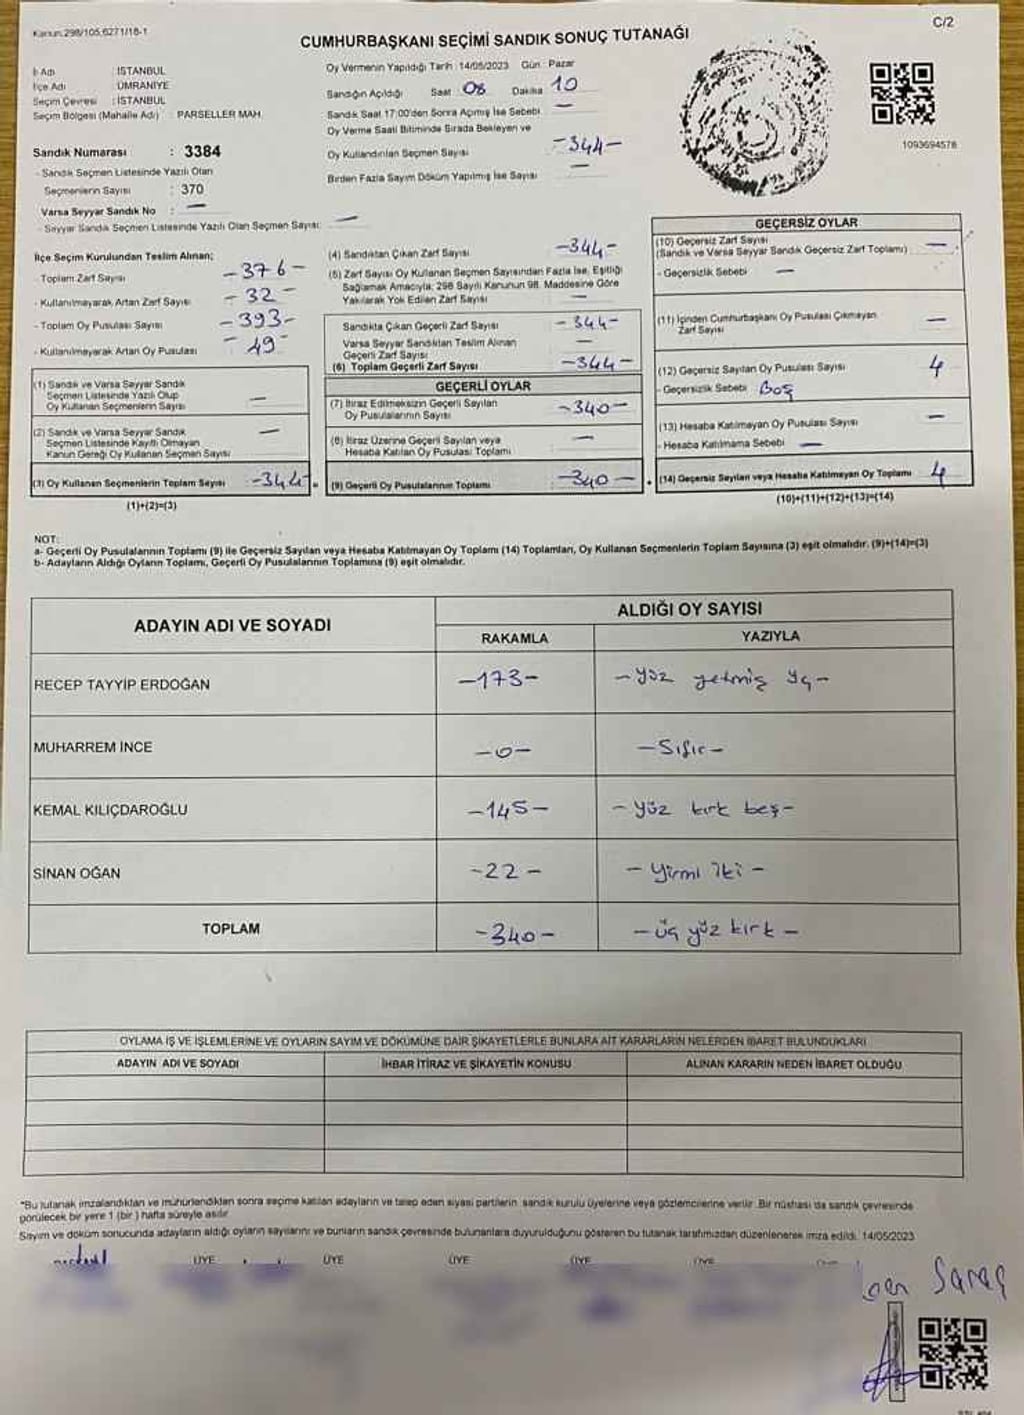 Kanun:298/105,6271/18-1
C/2
CUMHURBAŞKANI SEÇİMİ SANDIK SONUÇ TUTANAĞI
İl Adı : İSTANBUL
İlçe Adı : ÜMRANİYE
Seçim Çevresi : İSTANBUL
Seçim Bölgesi (Mahalle Adı) : PARSELLER MAH.
Sandık Numarası : 3384
- Sandık Seçmen Listesinde Yazılı Olan
Seçmenlerin Sayısı : 370
Varsa Seyyar Sandık No : —
- Seyyar Sandık Seçmen Listesinde Yazılı Olan Seçmen Sayısı: —
Oy Vermenin Yapıldığı Tarih : 14/05/2023 Gün : Pazar
Sandığın Açıldığı Saat 08 Dakika 10
Sandık Saat 17:00'den Sonra Açılmış İse Sebebi —
Oy Verme Saati Bitiminde Sırada Bekleyen ve
Oy Kullandırılan Seçmen Sayısı -344-
Birden Fazla Sayım Döküm Yapılmış İse Sayısı —
1093694578
İlçe Seçim Kurulundan Teslim Alınan;
- Toplam Zarf Sayısı -376-
- Kullanılmayarak Artan Zarf Sayısı -32-
- Toplam Oy Pusulası Sayısı -393-
- Kullanılmayarak Artan Oy Pusulası -49-
(1) Sandık ve Varsa Seyyar Sandık
Seçmen Listesinde Yazılı Olup
Oy Kullanan Seçmenlerin Sayısı —
(2) Sandık ve Varsa Seyyar Sandık
Seçmen Listesinde Kayıtlı Olmayan
Kanun Gereği Oy Kullanan Seçmen Sayısı —
(3) Oy Kullanan Seçmenlerin Toplam Sayısı -344-
(1)+(2)=(3)
(4) Sandıktan Çıkan Zarf Sayısı -344-
(5) Zarf Sayısı Oy Kullanan Seçmen Sayısından Fazla İse, Eşitliği
Sağlamak Amacıyla; 298 Sayılı Kanunun 98. Maddesine Göre
Yakılarak Yok Edilen Zarf Sayısı —
Sandıkta Çıkan Geçerli Zarf Sayısı -344-
Varsa Seyyar Sandıktan Teslim Alınan
Geçerli Zarf Sayısı —
(6) Toplam Geçerli Zarf Sayısı -344-
GEÇERLİ OYLAR
(7) İtiraz Edilmeksizin Geçerli Sayılan
Oy Pusulalarının Sayısı -340-
(8) İtiraz Üzerine Geçerli Sayılan veya
Hesaba Katılan Oy Pusulası Toplamı —
(9) Geçerli Oy Pusulalarının Toplamı -340-
GEÇERSİZ OYLAR
(10) Geçersiz Zarf Sayısı
(Sandık ve Varsa Seyyar Sandık Geçersiz Zarf Toplamı) —
- Geçersizlik Sebebi —
(11) İçinden Cumhurbaşkanı Oy Pusulası Çıkmayan
Zarf Sayısı —
(12) Geçersiz Sayılan Oy Pusulası Sayısı 4
- Geçersizlik Sebebi Boş
(13) Hesaba Katılmayan Oy Pusulası Sayısı —
- Hesaba Katılmama Sebebi —
(14) Geçersiz Sayılan veya Hesaba Katılmayan Oy Toplamı 4
(10)+(11)+(12)+(13)=(14)
NOT:
a- Geçerli Oy Pusulalarının Toplamı (9) ile Geçersiz Sayılan veya Hesaba Katılmayan Oy Toplamı (14) Toplamları, Oy Kullanan Seçmenlerin Toplam Sayısına (3) eşit olmalıdır. (9)+(14)=(3)
b- Adayların Aldığı Oyların Toplamı, Geçerli Oy Pusulalarının Toplamına (9) eşit olmalıdır.
ADAYIN ADI VE SOYADI ALDIĞI OY SAYISI
RAKAMLA YAZIYLA
RECEP TAYYİP ERDOĞAN -173- -yüz yetmiş üç-
MUHARREM İNCE -0- -Sıfır-
KEMAL KILIÇDAROĞLU -145- -yüz kırk beş-
SİNAN OĞAN -22- -yirmi iki-
TOPLAM -340- -üç yüz kırk-
OYLAMA İŞ VE İŞLEMLERİNE VE OYLARIN SAYIM VE DÖKÜMÜNE DAİR ŞİKAYETLERLE BUNLARA AİT KARARLARIN NELERDEN İBARET BULUNDUKLARI
ADAYIN ADI VE SOYADI İHBAR İTİRAZ VE ŞİKAYETİN KONUSU ALINAN KARARIN NEDEN İBARET OLDUĞU
*Bu tutanak imzalandıktan ve mühürlendikten sonra seçime katılan adayların ve talep eden siyasi partilerin sandık kurulu üyelerine veya gözlemcilerine verilir. Bir nüshası da sandık çevresinde
görülecek bir yere 1 (bir) hafta süreyle asılır.
Sayım ve döküm sonucunda adayların aldığı oyların sayılarını ve bunların sandık çevresinde bulunanlara duyurulduğunu gösteren bu tutanak tarafımızdan düzenlenerek imza edildi. 14/05/2023
ÜYE ÜYE ÜYE ÜYE ÜYE
Saraç